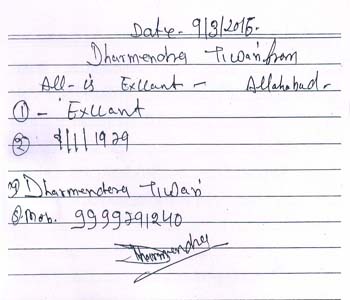 Date - 9/3/2015.
Dharmendra Tiwari from
All - is Exllant - Allahabad -
① - Exllant
② 1/1/1929
③ Dharmendera Tiwari
④ Mob. 9999291240
Dharmendra